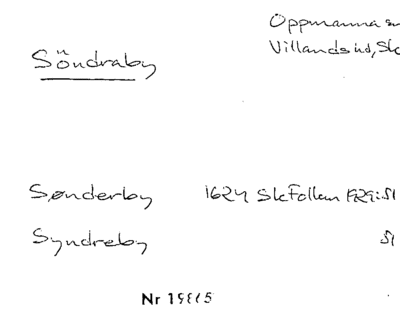 Oppmanna sn
Söndraby
Villands hd, Sk
Sønderby 1624 SkFollam 1929:51
Syndreby 51
Nr